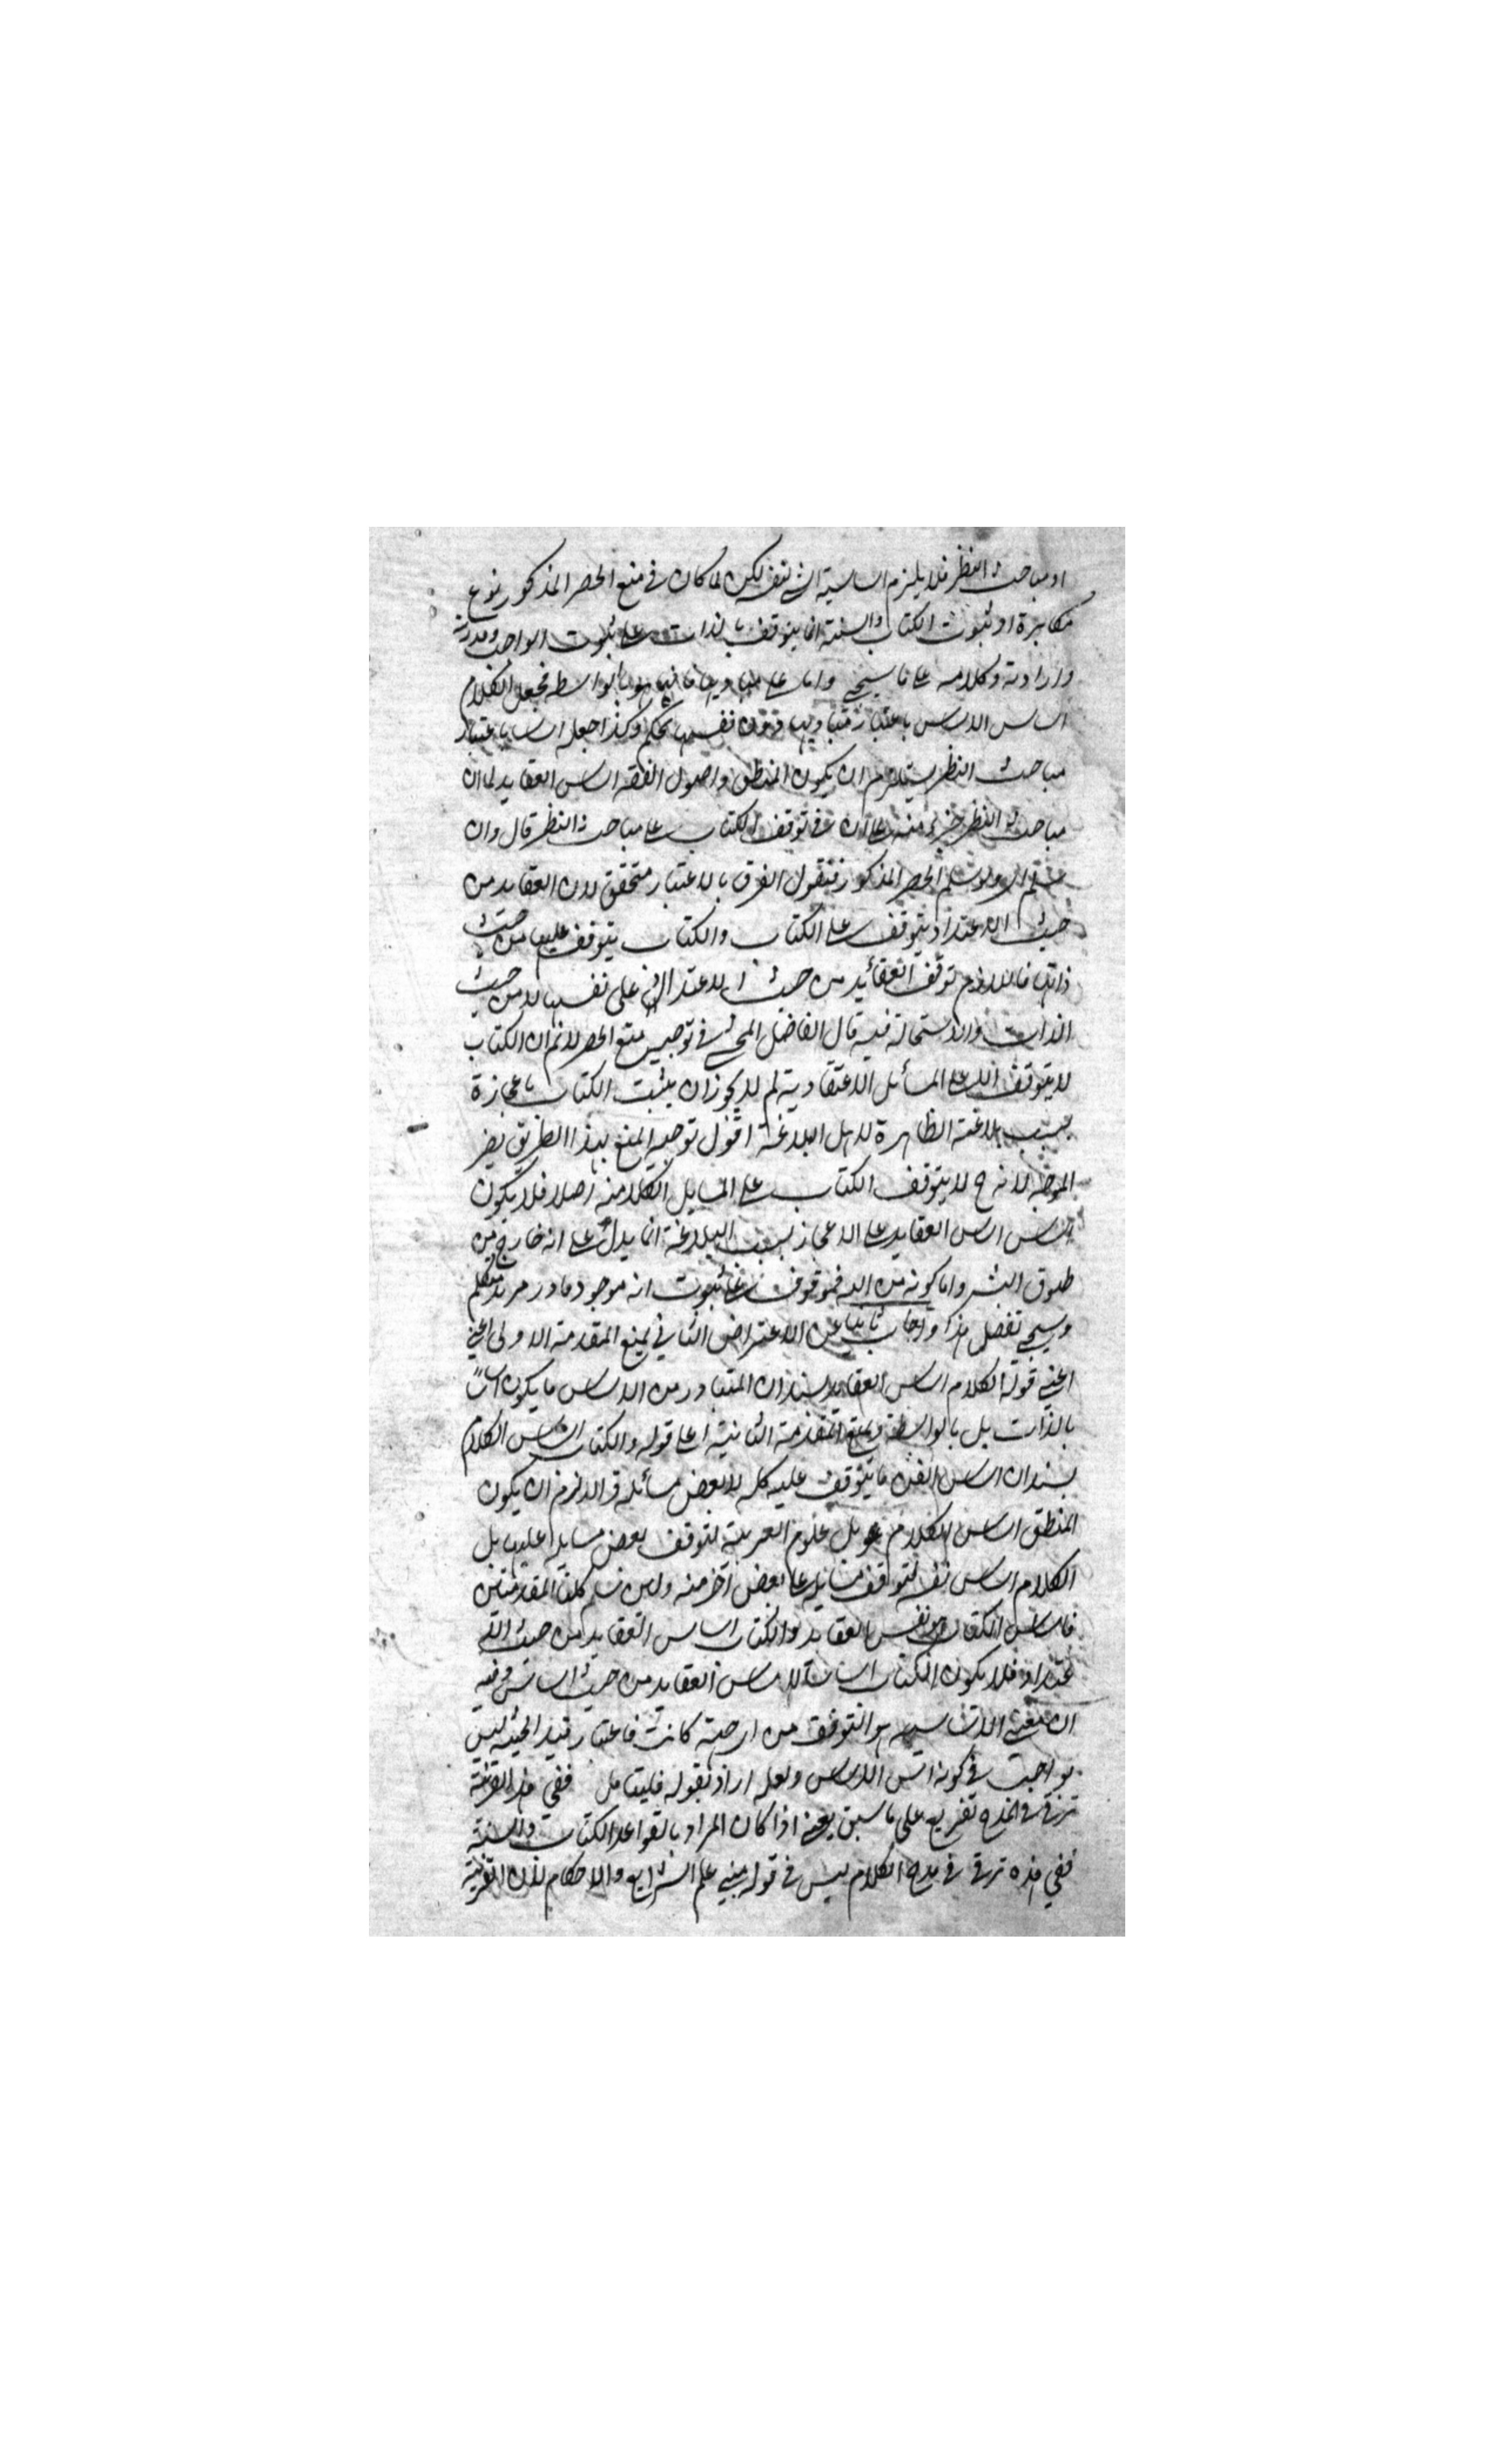 او مباحث النظر فلا يلزم اساسية الشئ لنفسه لكن لما كان في منع الحصر المذكور نوع
مكابرة اذ ثبوت الكتاب والسنة انما يتوقف بالذات على ثبوت الواجب وقدرته
وارادته وكلامه على ما سيجئ واما على مباديها فانما هو بالواسطه فجعل الكلام
اساس الاساس باعتبار مباديها دون نفسها تحكم وكذا جعله اساسا باعتبار
مباحث النظر يستلزم ان يكون المنطق واصول الفقه اساس العقايد لما ان
مباحث النظر جزء منه على ان في توقف الكتاب على مباحث النظر قال وان
سلم اي ولو سلم الحصر المذكور فنقول الفرق بالاعتبار متحقق لان العقايد من
حيث الاعتداد يتوقف على الكتاب والكتاب يتوقف عليها من حيث
ذاتها فاللازم توقف العقائد من حيث الاعتداد على نفسها لا من حيث
الذات والاستحالة فيه قال الفاضل المحشي في توجيه منع الحصر لا نم ان الكتاب
لا يتوقف الا على المسائل الاعتقادية لم لا يجوز ان يثبت الكتاب باعجازه
بسبب بلاغته الظاهرة لاهل البلاغة اقول توجيه المنع بهذا الطريق يضر
الموجه لانه ح لا يتوقف الكتاب على المسايل الكلامية اصلا فلا يكون
اساس اساس العقايد على الاعجاز بسبب البلاغة انما يدل على انه خارج من
طوق البشر واما كونه من الله فموقوف على ثبوت انه موجود قادر مريد متكلم
وسيجئ تفصيل هذا واجاب ثانيا عن الاعتراض الثاني بمنع المقدمة الاولى اعني
اعني قوله الكلام اساس العقايد بسند ان المتبادر من الاساس ما يكون اساسا
بالذات بل بالواسطة وبمنع المقدمة الثانية اعني قوله والكتاب اساس الكلام
بسند ان اساس الفن ما يتوقف عليه كله لا بعض مسائله والا لزم ان يكون
المنطق اساس الكلام بل علوم العربية لتوقف بعض مسايله عليها بل
الكلام اساس نفسه لتوقف مسايله على بعض آخر منه ولئن سلم كلتا المقدمتين
فاساس الكتاب هو نفس العقايد والكتاب اساس العقايد من حيث الا
عتداد فلا يكون الكتاب اساسا لاساس العقايد من حيث اساس وفيه
ان معنى الاساسيه هو التوقف من اي جهة كانت فاعتبار قيد الحيثيه ليس
بواجب في كونه اس الاساس ولعله اراد بقوله فليتامل ففي هذه القرينة
ترق في المدح تفريع على ما سبق يعني اذا كان المراد بالقواعد الكتاب والسنة
ففي هذه ترق في مدح الكلام ليس في قوله مبنى علم الشرايع والاحكام لان القرينة